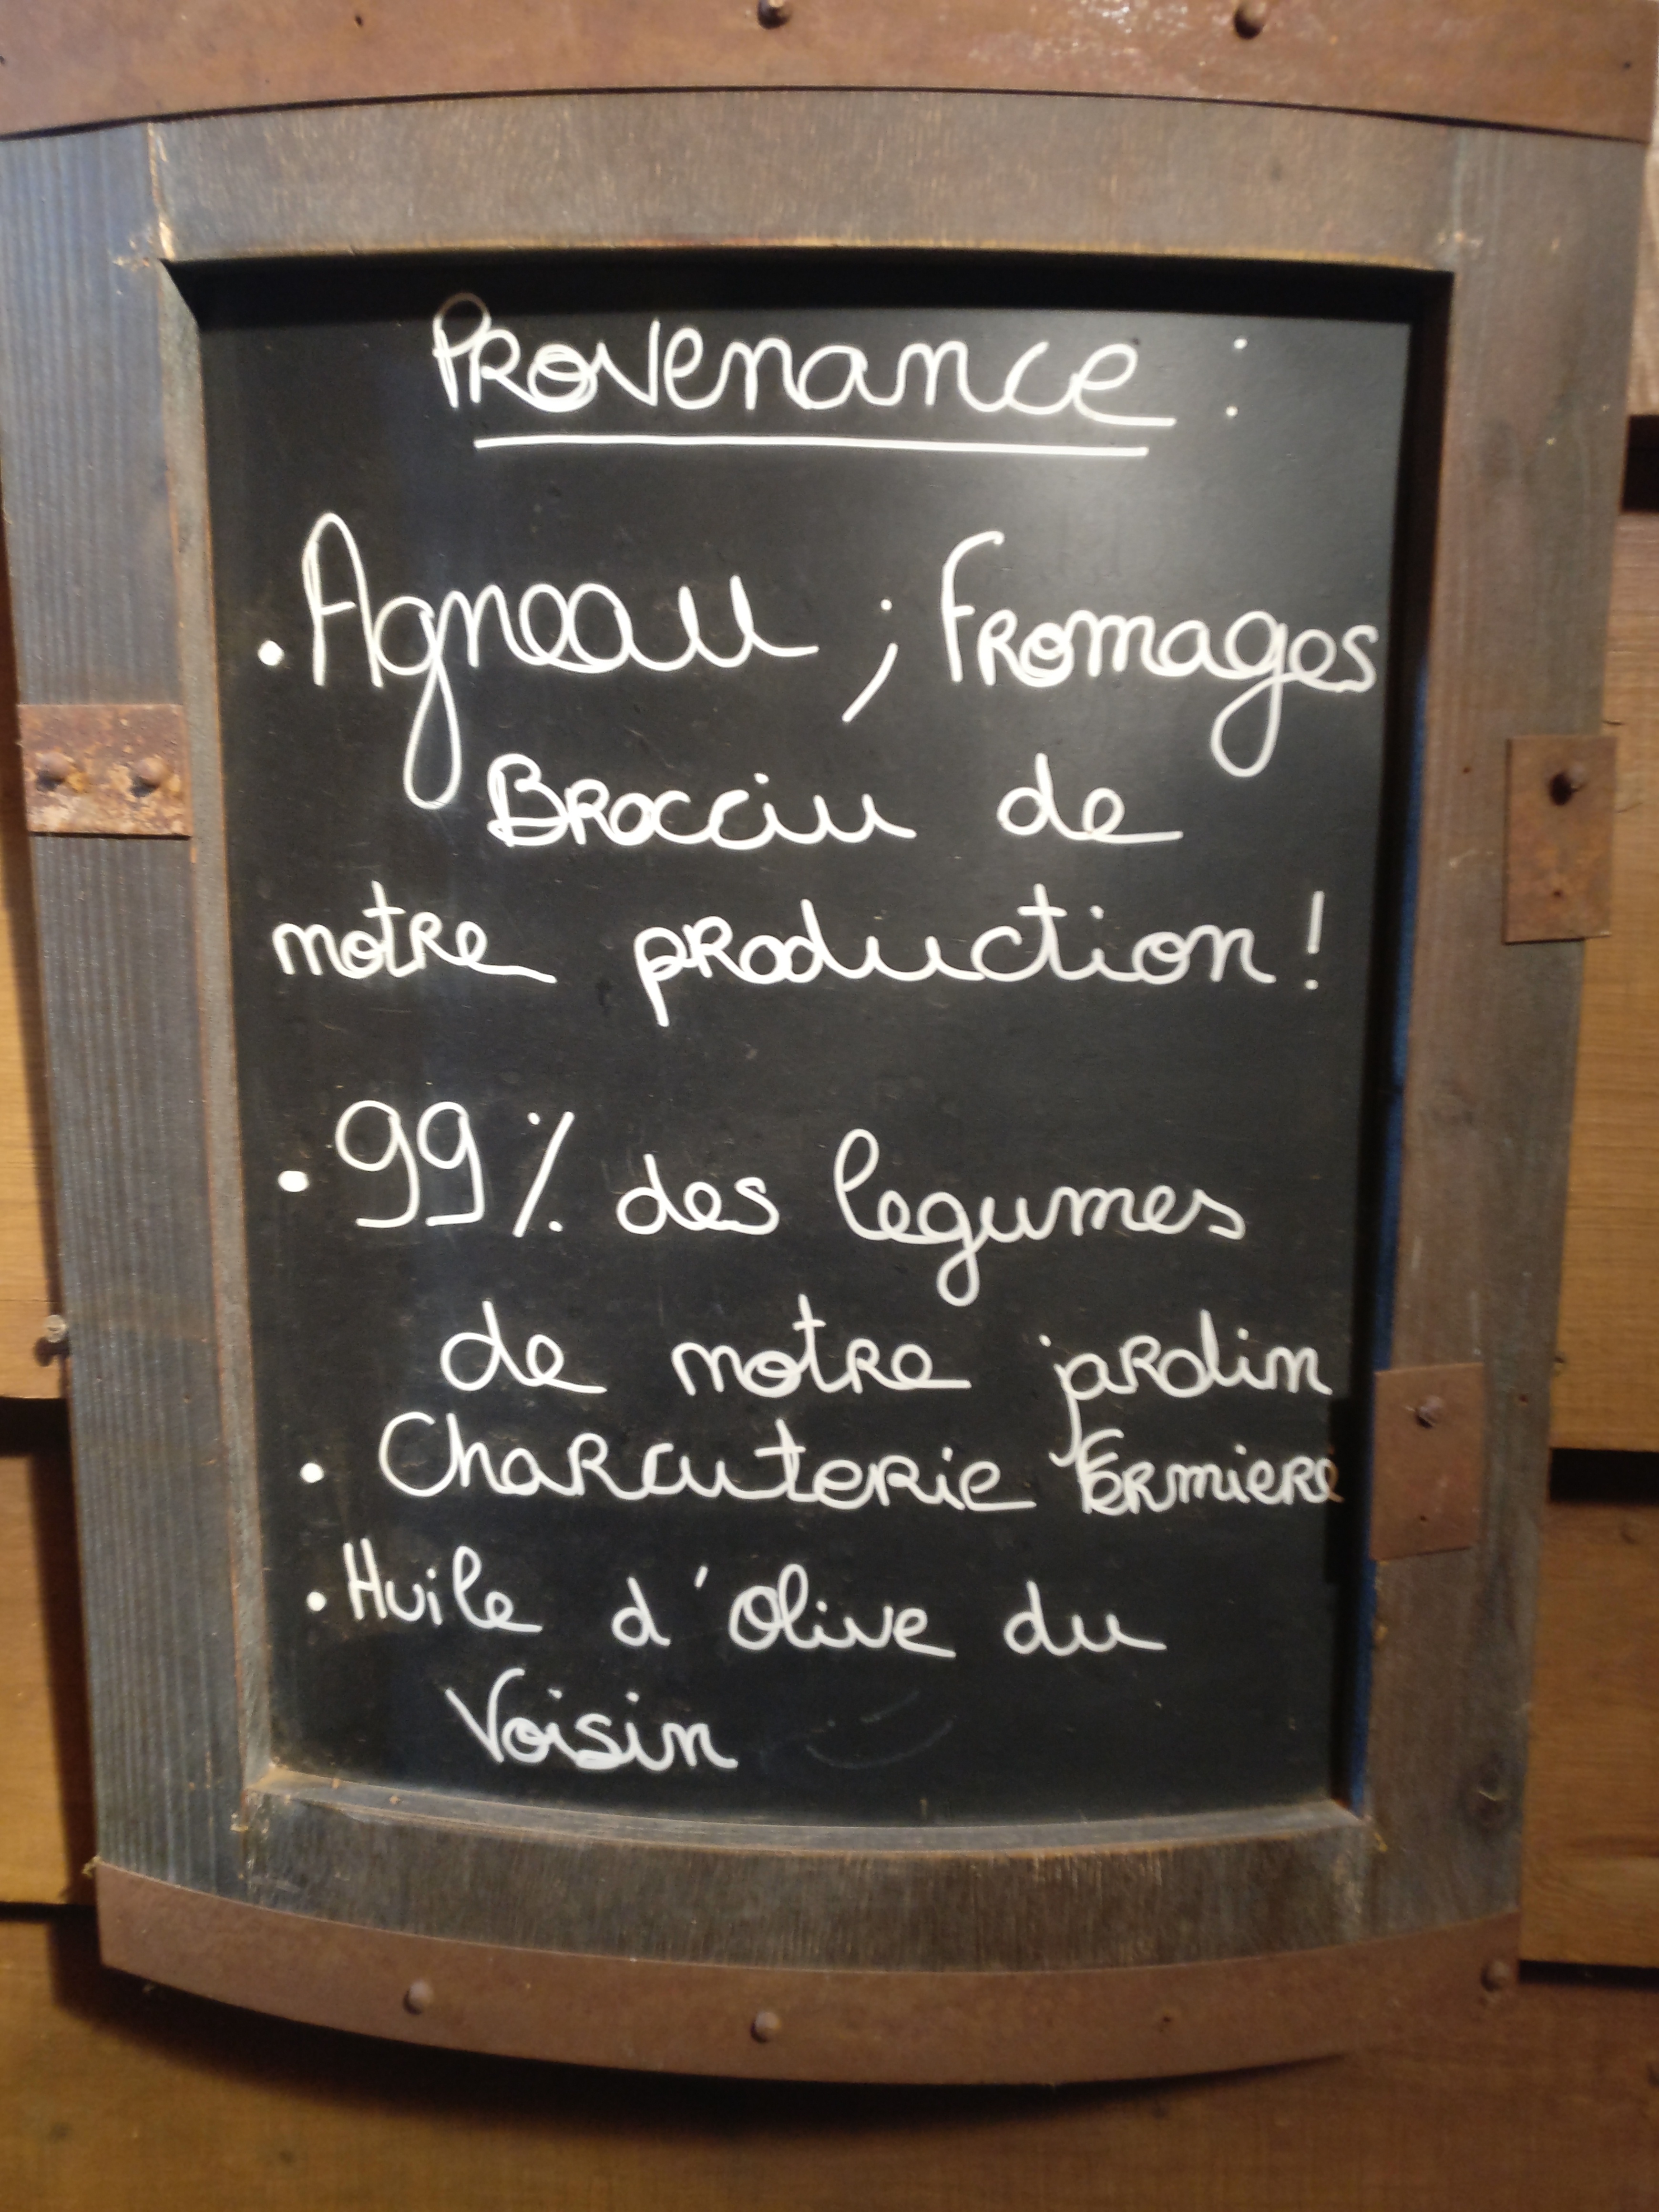 Provenance :
. Agneau ; Fromages
Brocciu de
notre production !
. 99 % des legumes
de notre jardin
. Charcuterie Fermiere
. Huile d'Olive du
Voisin